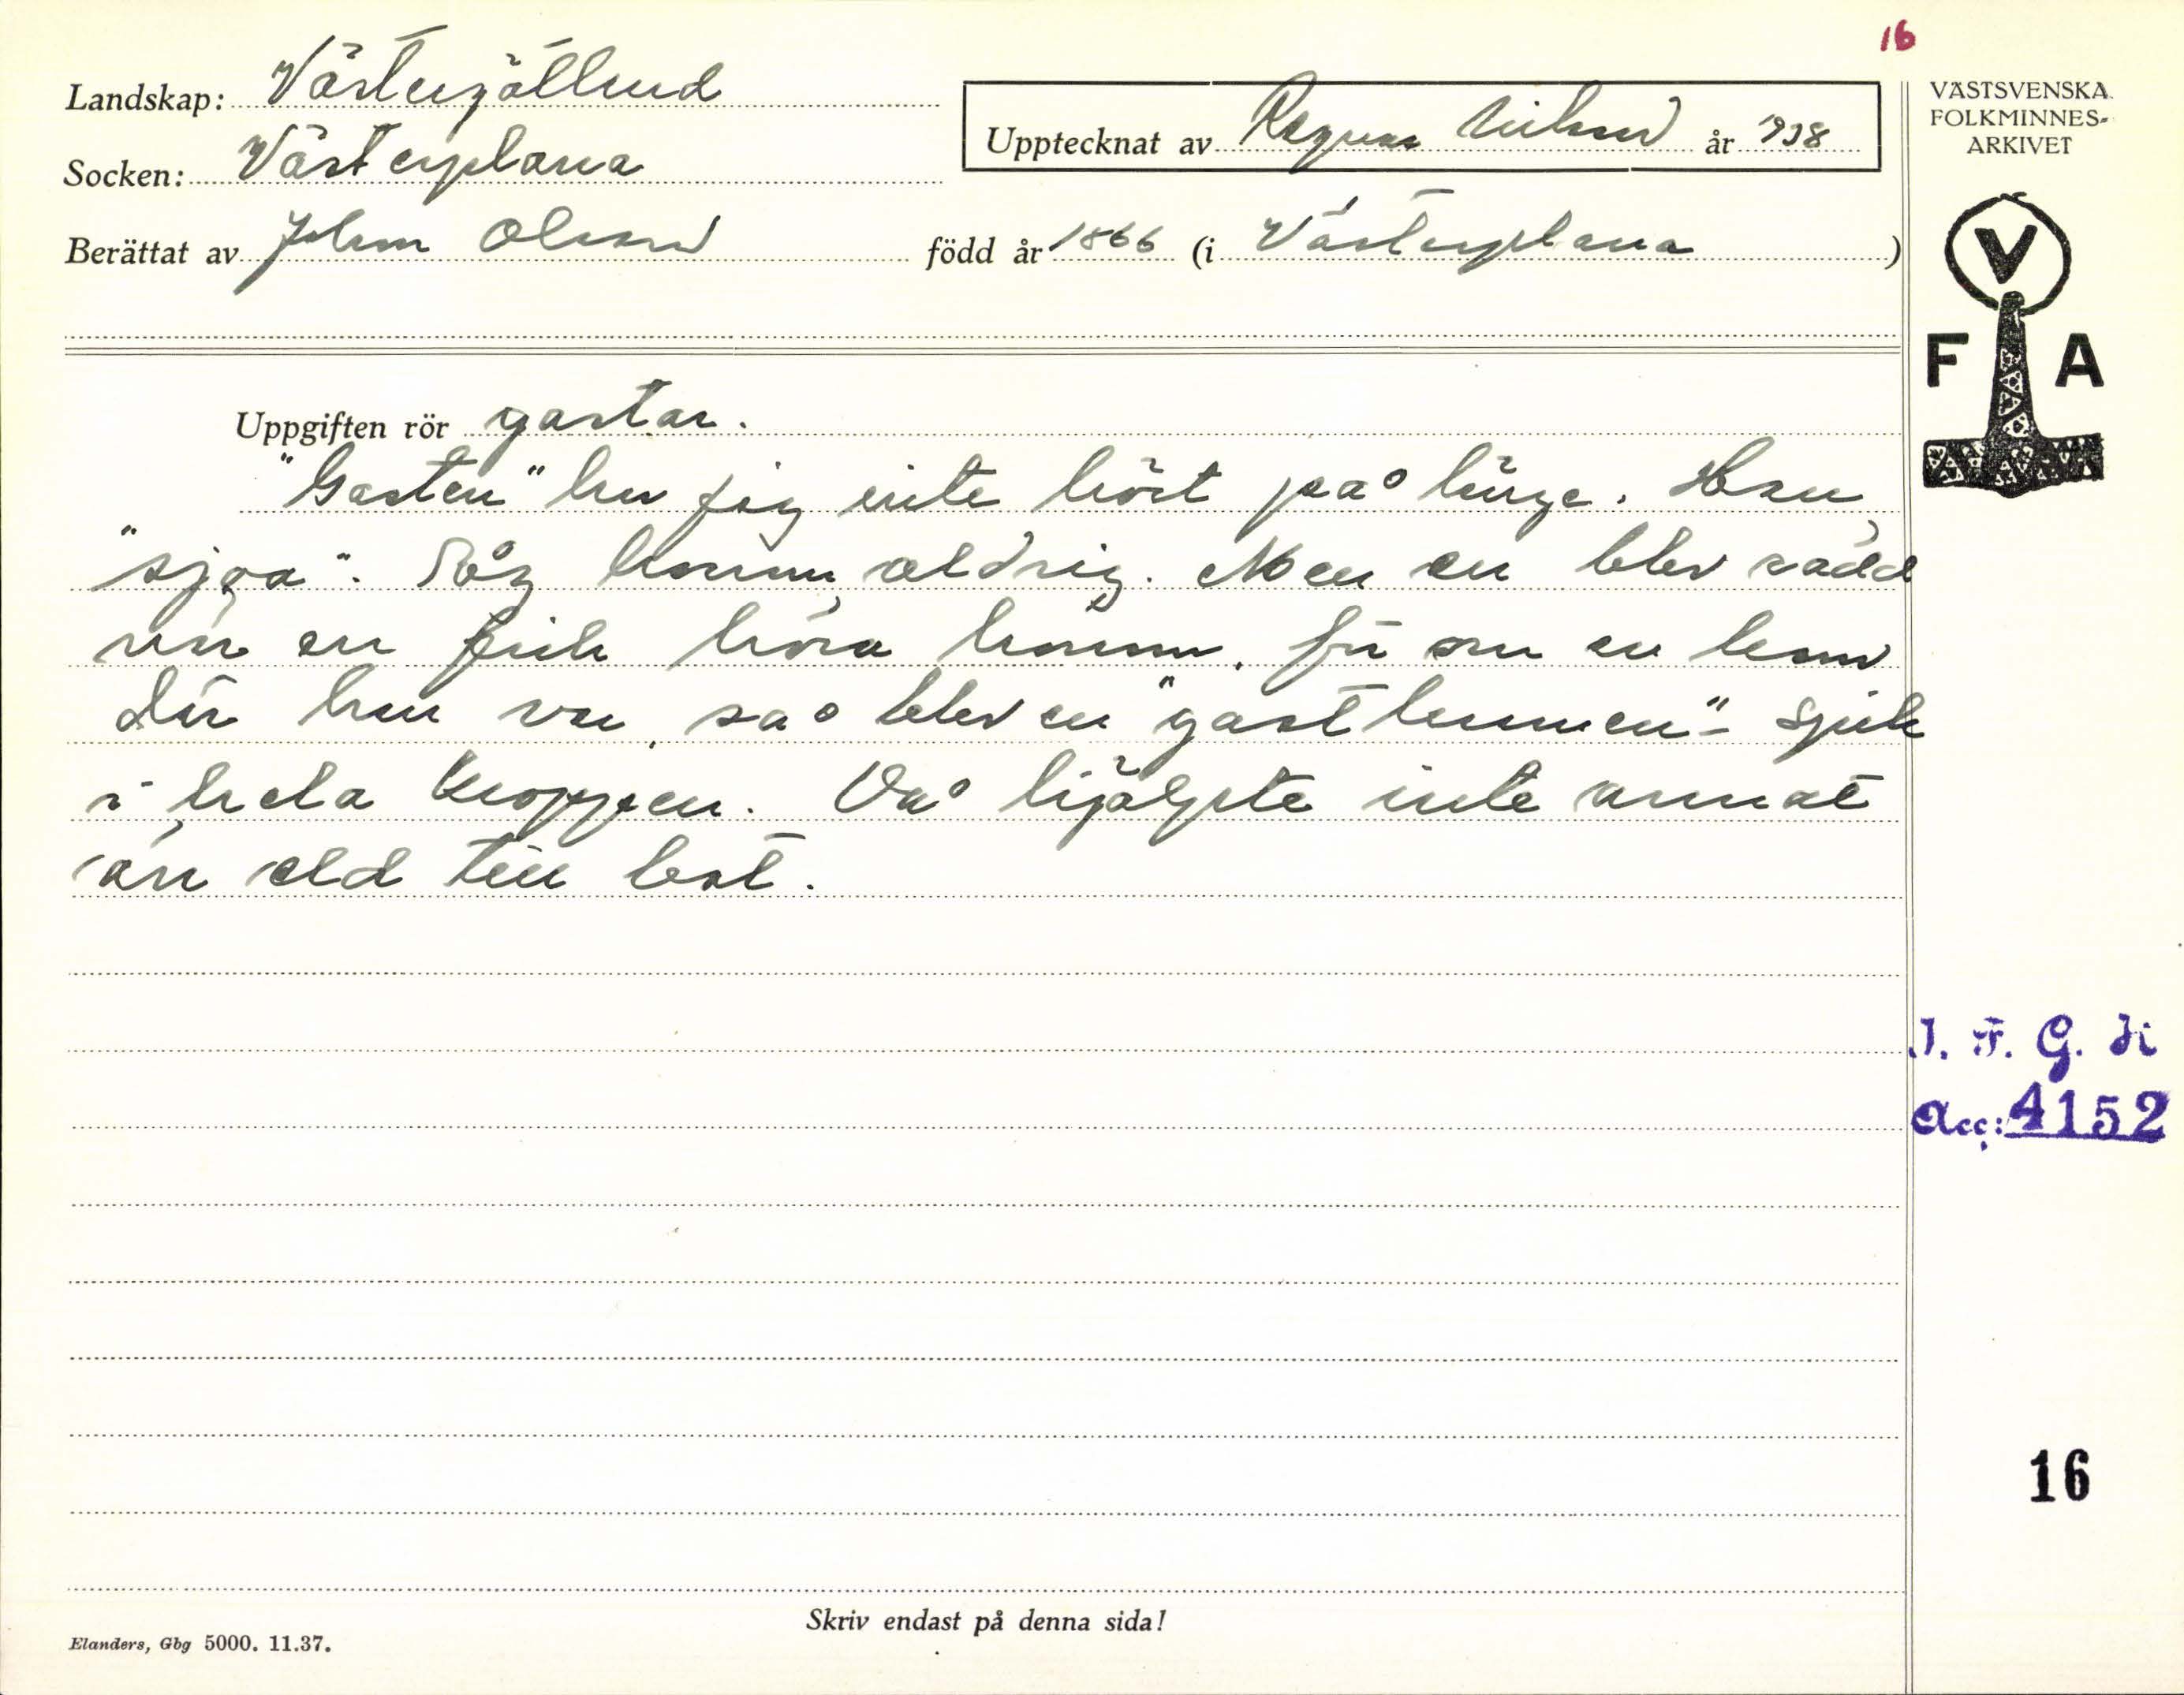 16
Landskap: Västergötland
Socken: Västerplana
Upptecknat av Ragnar Nilsson år 1938
Berättat av Johan Olsson född år 1866 (i Västerplana)
VÄSTSVENSKA
FOLKMINNES-
ARKIVET
V
F A
Uppgiften rör gastar.
"Gasten" har jag inte hört på länge. Han
"sjöa". Såg honom aldrig. Men en blev rädd
när en fick höra honom, för om en kom
där han var, så blev en "gastkramen" - sjuk
i hela kroppen. Då hjälpte inte annat
än eld till bot.
I. F. G. H:
Acc: 4152
16
Skriv endast på denna sida!
Elanders, Gbg 5000. 11.37.